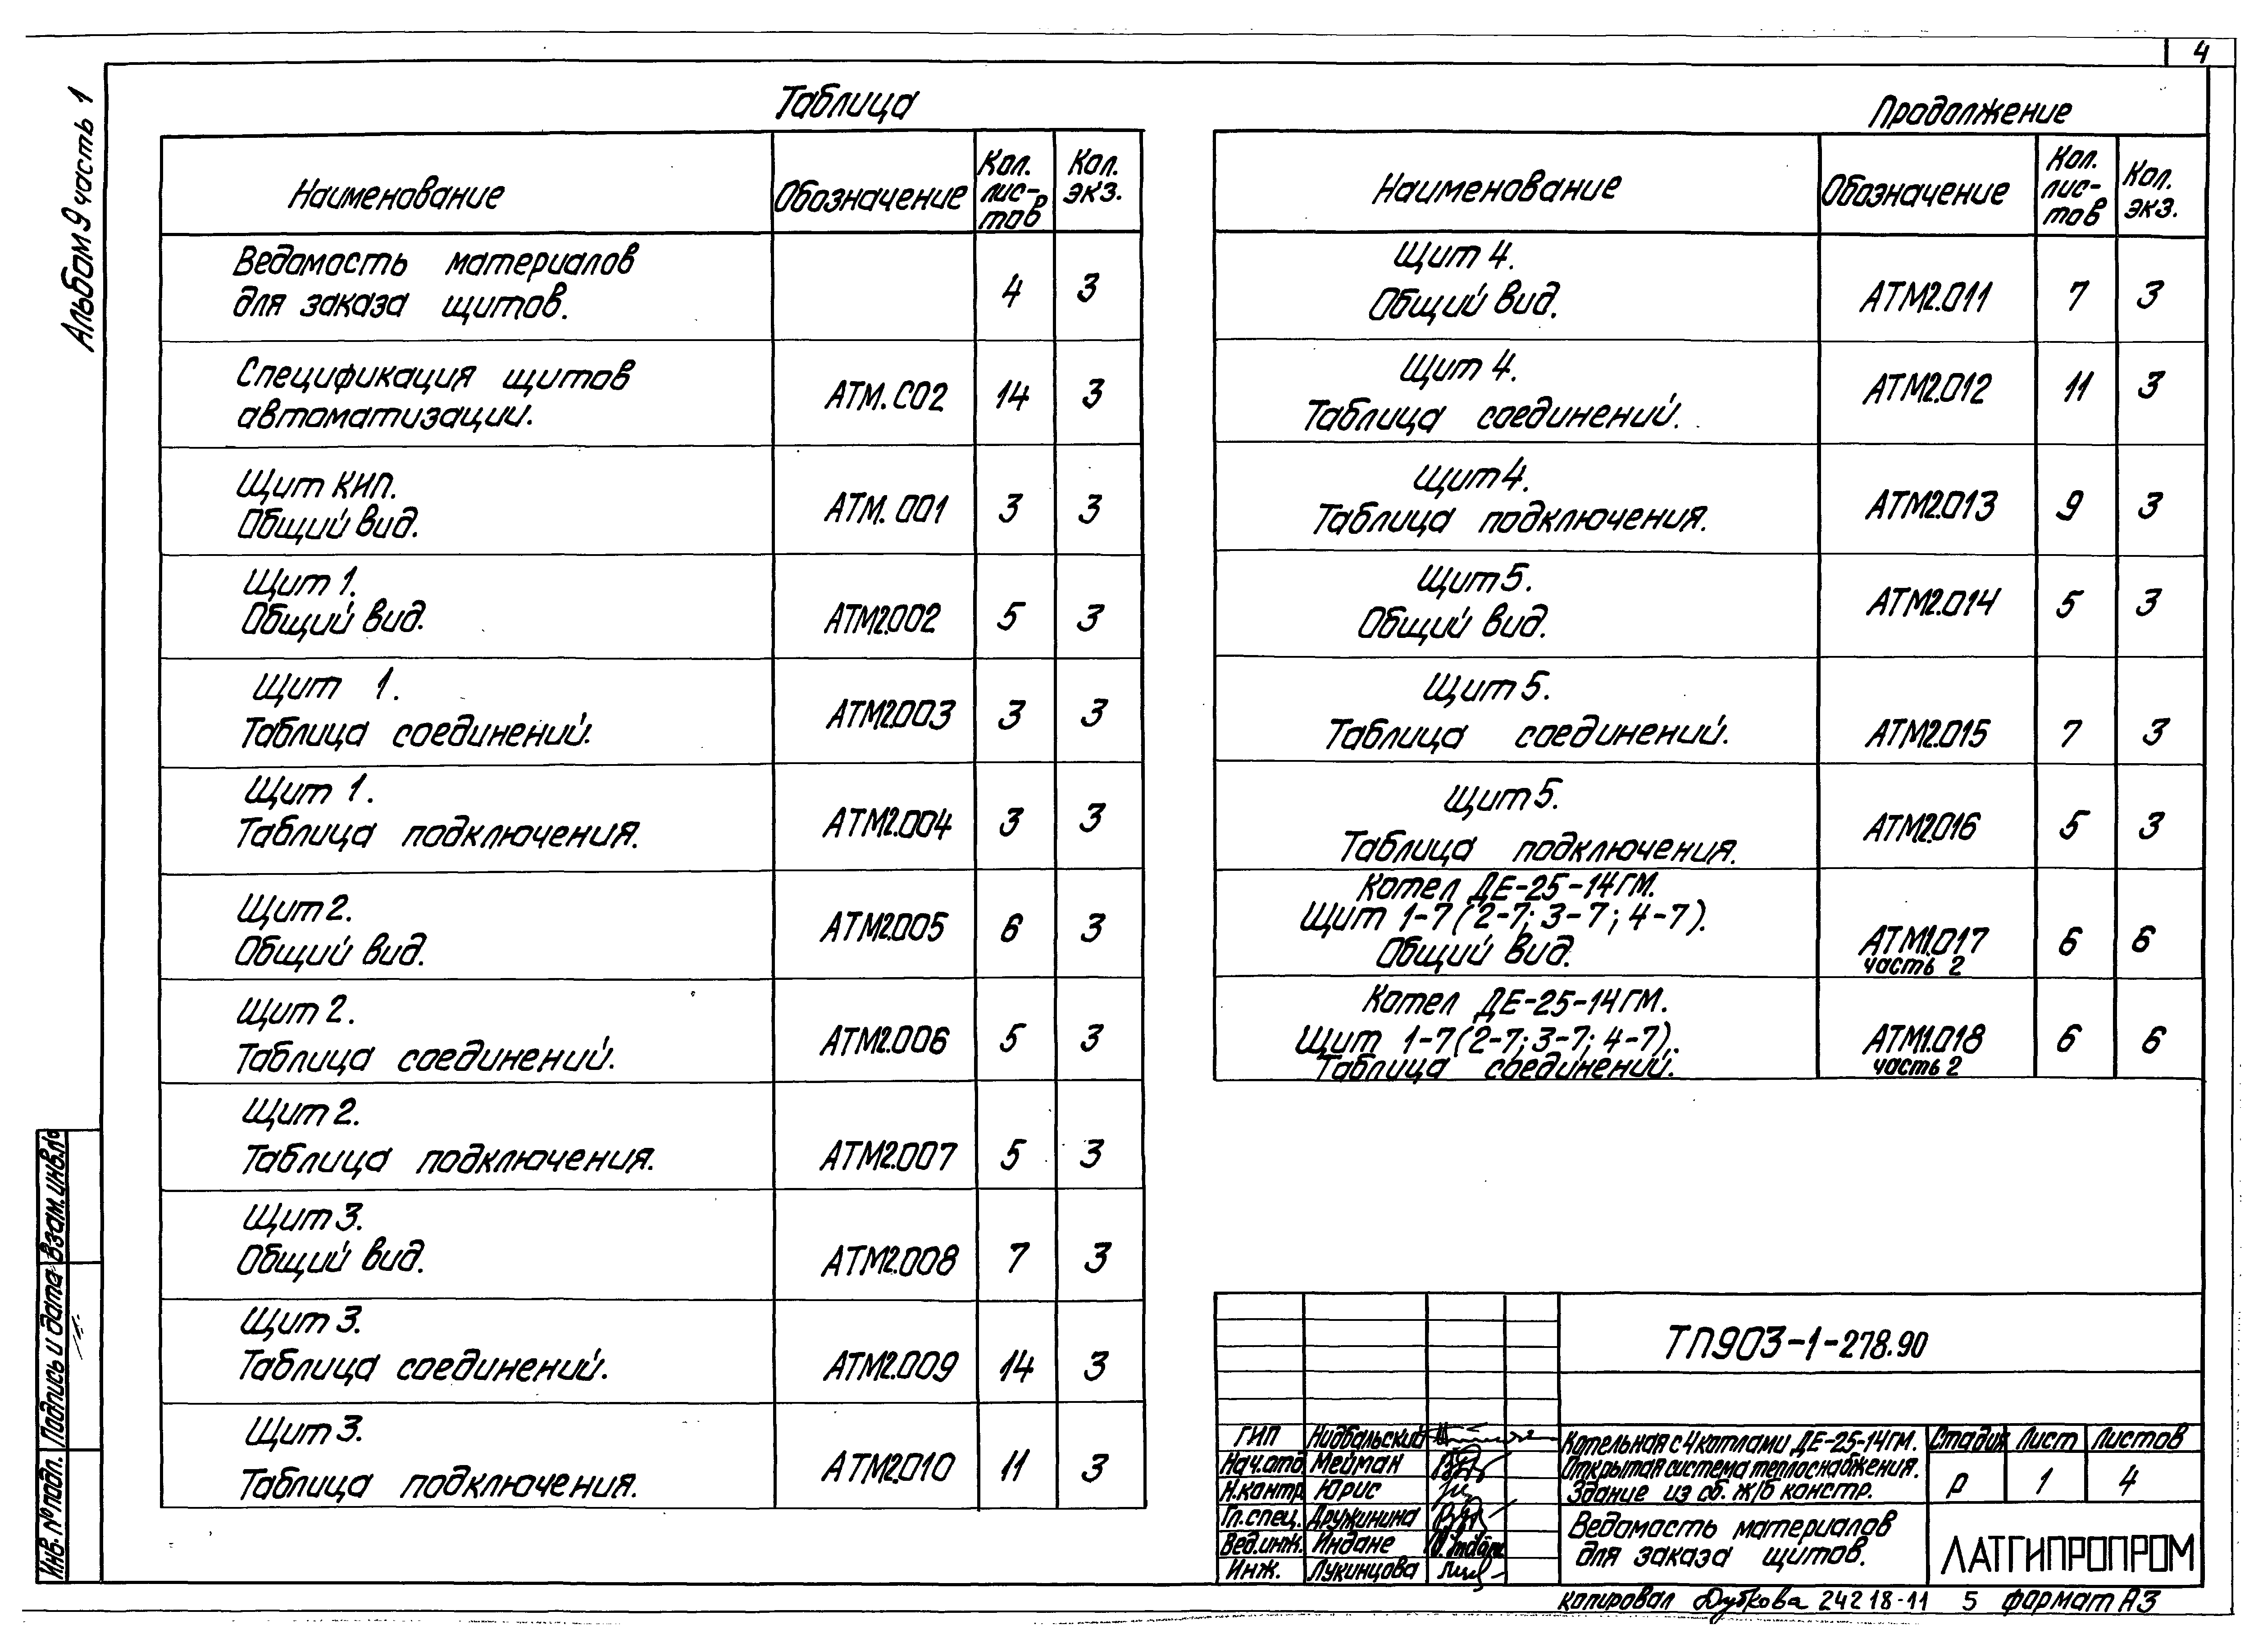 4
Альбом 9 часть 1
Таблица
Наименование
Обозначение
Кол.
лис-
тов
Кол.
экз.
Ведомость материалов
для заказа щитов.
4
3
Спецификация щитов
автоматизации.
АТМ.С02
14
3
Щит КИП.
Общий вид.
АТМ.001
3
3
Щит 1.
Общий вид.
АТМ2.002
5
3
Щит 1.
Таблица соединений.
АТМ2.003
3
3
Щит 1.
Таблица подключения.
АТМ2.004
3
3
Щит 2.
Общий вид.
АТМ2.005
6
3
Щит 2.
Таблица соединений.
АТМ2.006
5
3
Щит 2.
Таблица подключения.
АТМ2.007
5
3
Щит 3.
Общий вид.
АТМ2.008
7
3
Щит 3.
Таблица соединений.
АТМ2.009
14
3
Щит 3.
Таблица подключения.
АТМ2.010
11
3
Продолжение
Наименование
Обозначение
Кол.
лис-
тов
Кол.
экз.
Щит 4.
Общий вид.
АТМ2.011
7
3
Щит 4.
Таблица соединений.
АТМ2.012
11
3
Щит 4.
Таблица подключения.
АТМ2.013
9
3
Щит 5.
Общий вид.
АТМ2.014
5
3
Щит 5.
Таблица соединений.
АТМ2.015
7
3
Щит 5.
Таблица подключения.
АТМ2.016
5
3
Котел ДЕ-25-14ГМ.
Щит 1-7 (2-7; 3-7; 4-7).
Общий вид.
АТМ1.017
часть 2
6
6
Котел ДЕ-25-14ГМ.
Щит 1-7 (2-7; 3-7; 4-7).
Таблица соединений.
АТМ1.018
часть 2
6
6
ТП903-1-278.90
ГИП Нидбальский
Нач.отд Мейман
Н.контр Юрис
Гл.спец. Дружинина
Вед.инж. Индане
Инж. Лукинцова
Котельная с 4 котлами ДЕ-25-14ГМ.
Открытая система теплоснабжения.
Здание из сб. ж/б констр.
Стадия Лист Листов
Р 1 4
Ведомость материалов
для заказа щитов.
ЛАТГИПРОПРОМ
Инв. № подл. Подпись и дата Взам. инв. №
копировал Дубкова 24218-11 5 формат А3